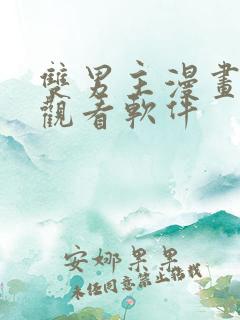 雙男主漫畫
觀看軟件
安娜果果
未经同意禁止转载